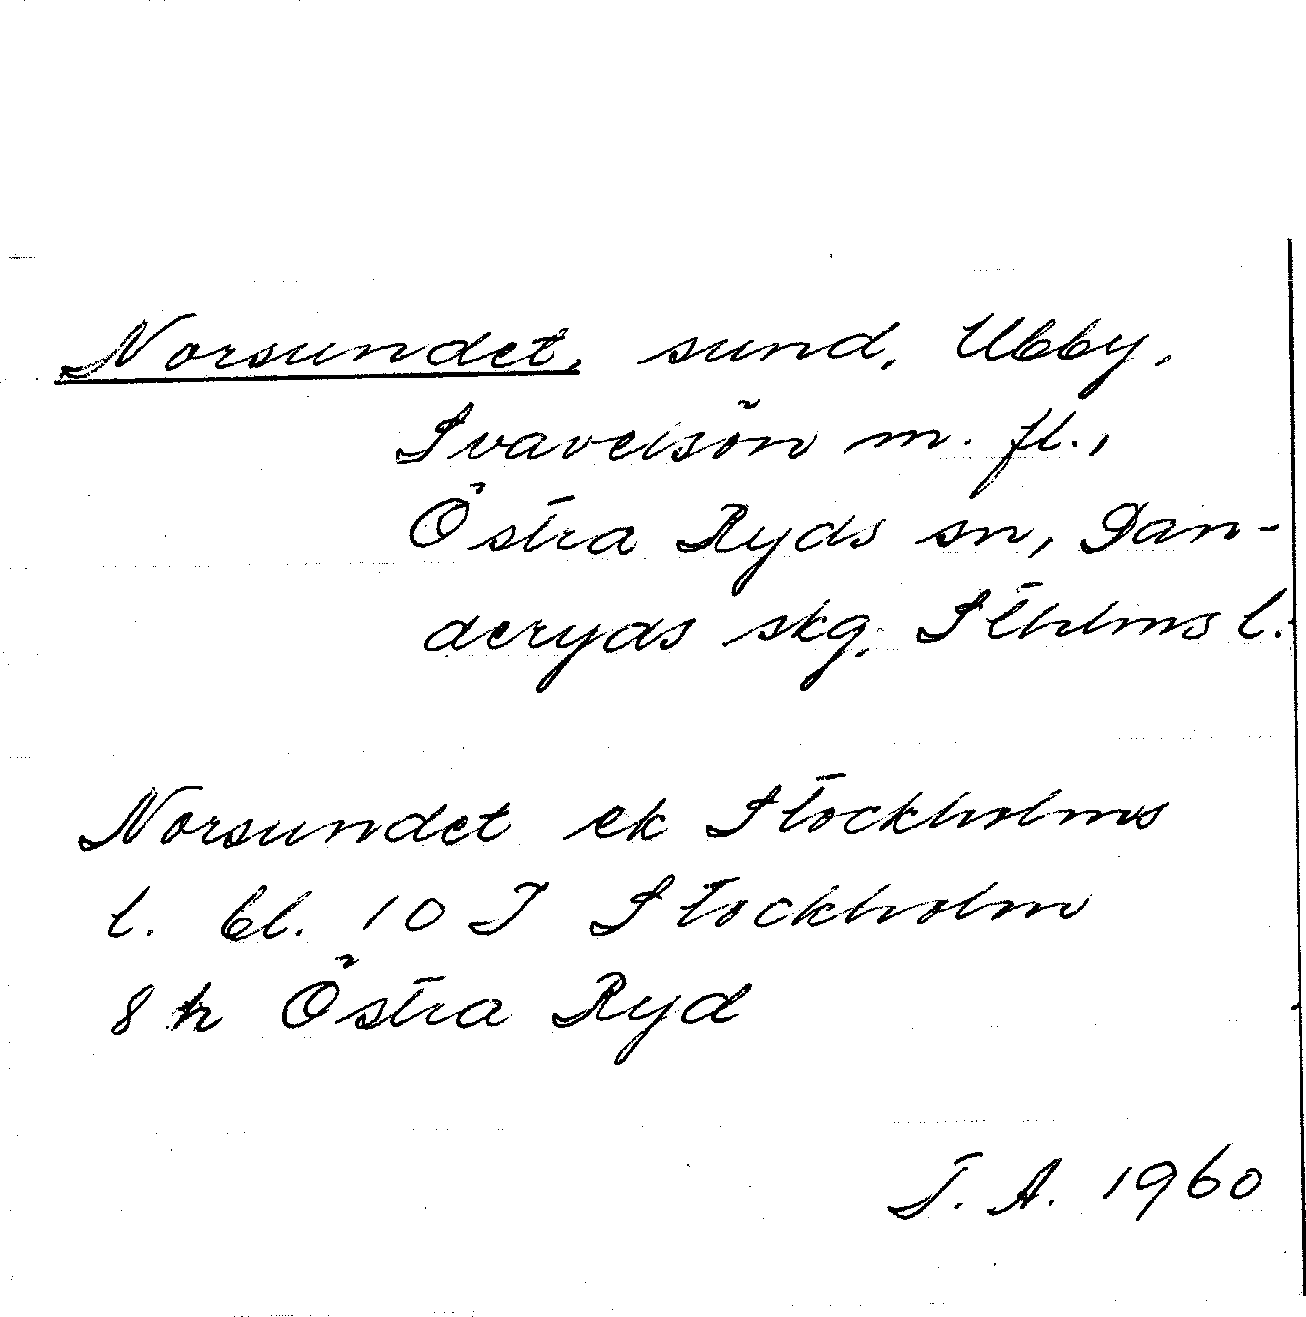 Norsundet, sund, Ubby,
Svavelsön m. fl.,
Östra Ryds sn, Dan-
deryds skg. Sthlms l.
Norsundet ek Stockholms
l. bl. 10 I Stockholm
8 h Östra Ryd
T. A. 1960